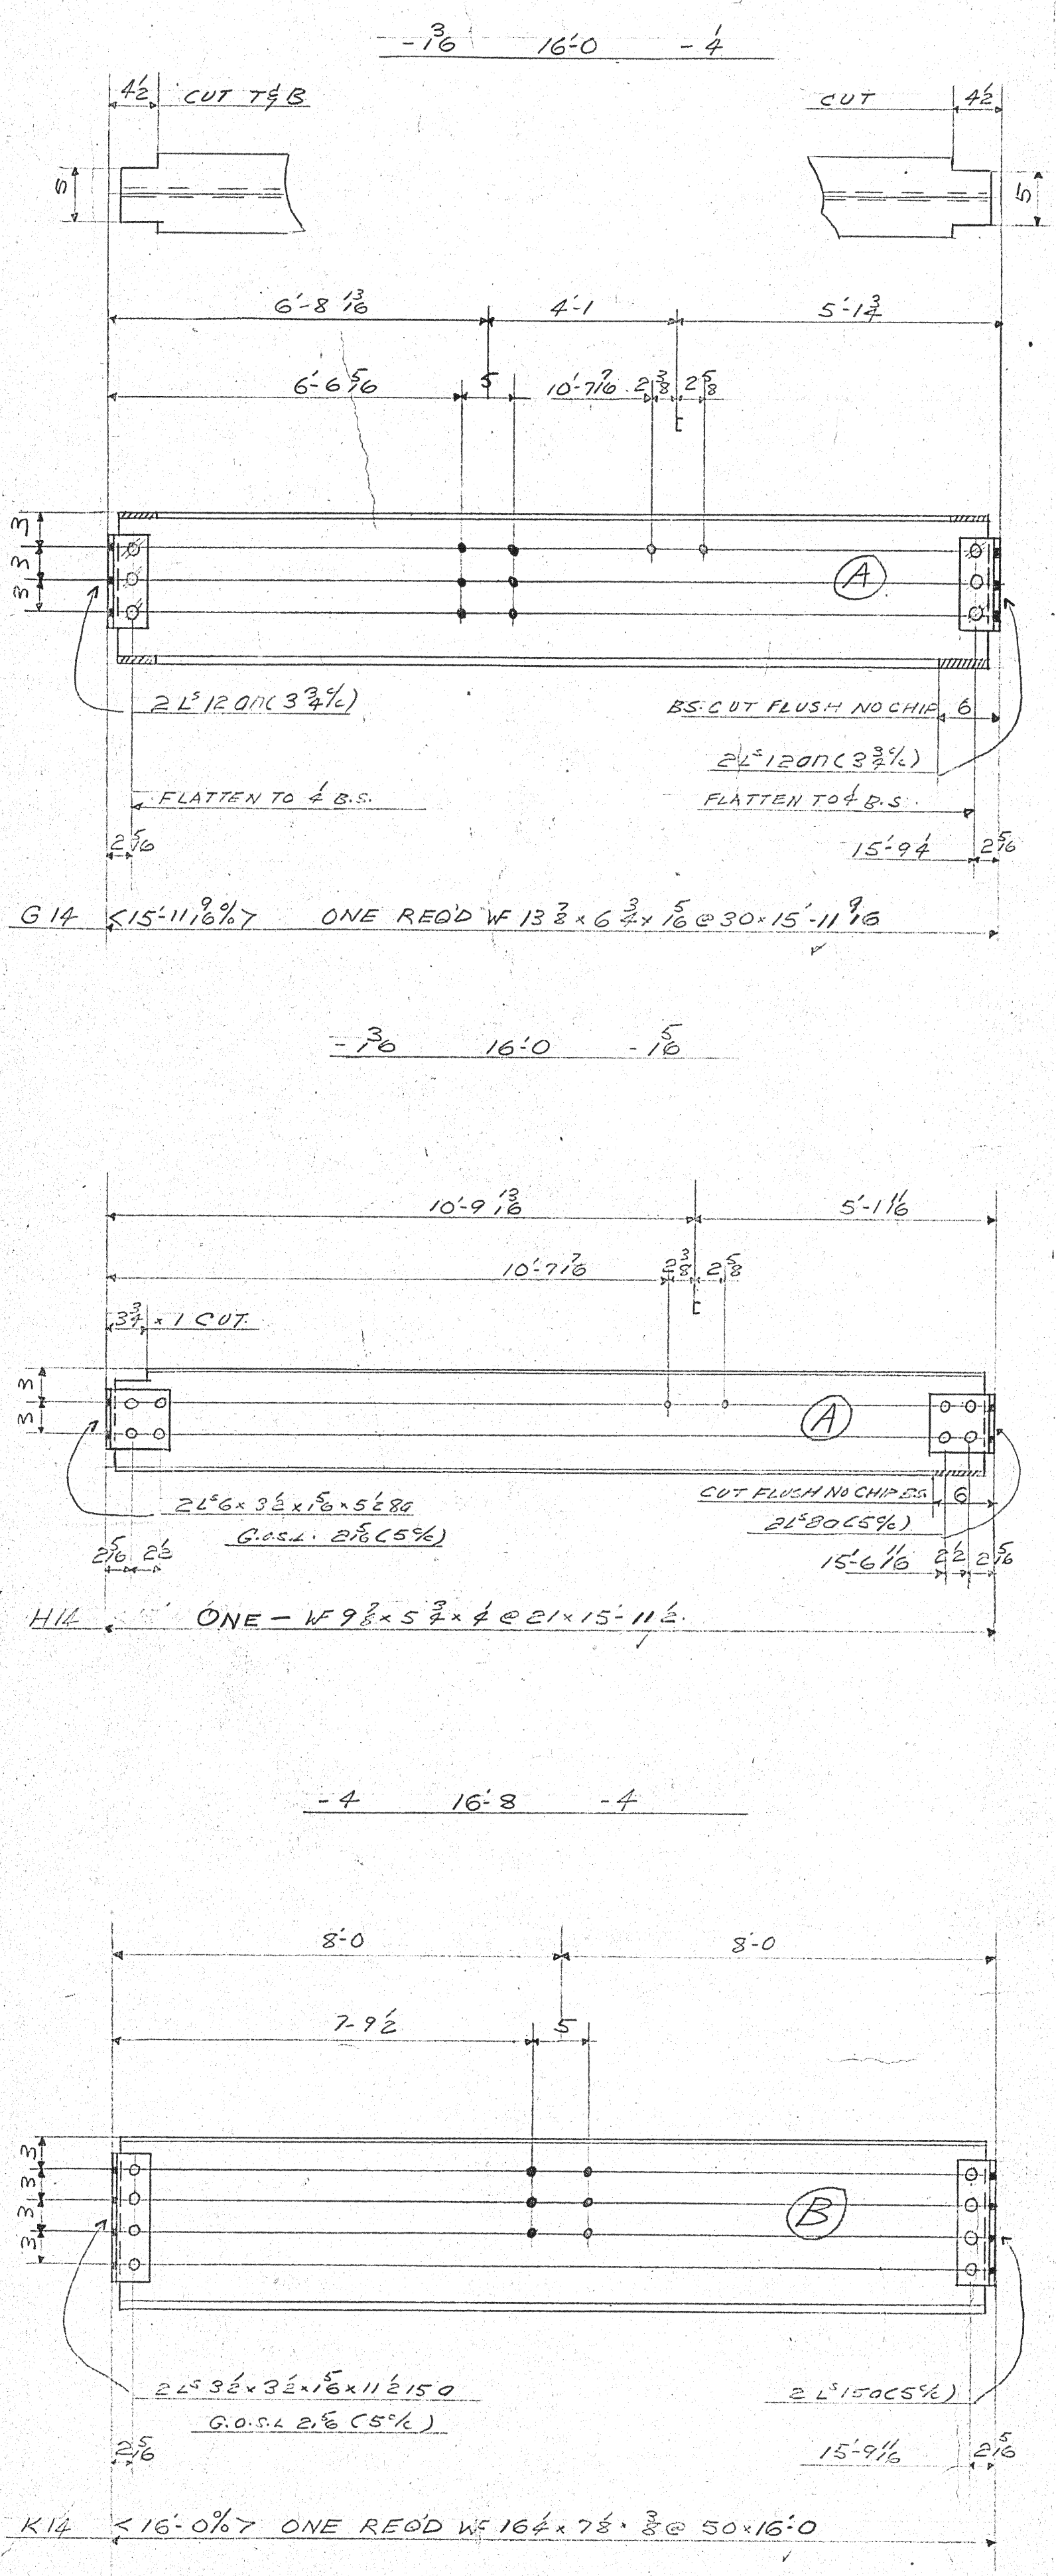 -3/16 16'-0 -1/4
4 1/2 CUT T&B CUT 4 1/2
5 5
6'-8 13/16 4'-1 5'-1 3/4
6'-6 5/16 5 10'-7 7/16 2 3/8 2 5/8
3
3
3
A
2 Ls 12an (3 3/4 c/c) BS. CUT FLUSH NO CHIP 6
2 Ls 12an (3 3/4 c/c)
FLATTEN TO 1/4 B.S. FLATTEN TO 1/4 B.S.
2 5/16 15'-9 1/4 2 5/16
G14 <15'-11 9/16 %> ONE REQ'D WF 13 7/8 x 6 3/4 x 5/16 @ 30 x 15'-11 9/16
-3/16 16'-0 -5/16
10'-9 13/16 5'-1 11/16
10'-7 7/16 2 3/8 2 5/8
3 3/4 x 1 CUT.
3
3
A
2 Ls 6 x 3 1/2 x 5/16 x 5 1/2 8a CUT FLUSH NO CHIP BS 6
G.O.S.L. 2 5/16 (5 c/c) 2 Ls 8a (5 c/c)
2 5/16 2 1/2 15'-6 11/16 2 1/2 2 5/16
H14 ONE - WF 9 7/8 x 5 3/4 x 1/4 @ 21 x 15'-11 1/2
-4 16'-8 -4
8'-0 8'-0
7-9 1/2 5
3
3
3
3
B
2 Ls 3 1/2 x 3 1/2 x 5/16 x 11 1/2 15a 2 Ls 15a (5 c/c)
G.O.S.L 2 5/16 (5 c/c)
2 5/16 15'-9 11/16 2 5/16
K14 <16'-0 %> ONE REQ'D WF 16 1/4 x 7 1/8 x 3/8 @ 50 x 16'-0